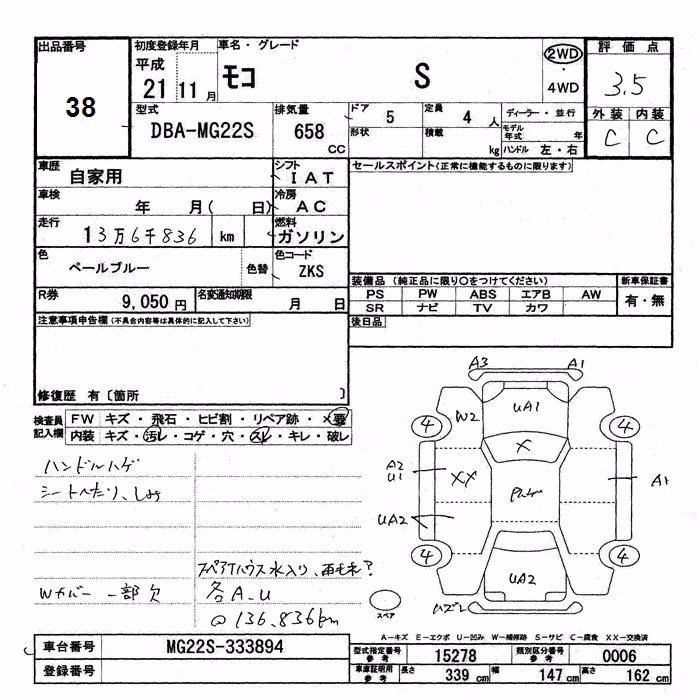 出品番号
38
初度登録年月
平成
21 11月
車名・グレード
モコ S
2WD
・
4WD
評価点
3.5
外装 内装
C C
型式
DBA-MG22S
排気量
658
CC
ドア
5
定員
4 人
形状
積載
kg
ディーラー・並行
モデル年式 年
ハンドル 左・右
車歴
自家用
シフト
IAT
セールスポイント(正常に機能するものに限ります)
車検
年 月( 日)
冷房
AC
走行
13万6千836 km
燃料
ガソリン
色
ペールブルー
色替
色コード
ZKS
R券
9,050円
名変通知期限
月 日
装備品 (純正品に限り○をつけてください)
PS PW ABS エアB AW
SR ナビ TV カワ
新車保証書
有・無
後日品
注意事項申告欄(不具合内容等は具体的に記入して下さい)
修復歴 有〔箇所 〕
検査員
記入欄
FW キズ・飛石・ヒビ割・リペア跡・×要
内装 キズ・汚レ・コゲ・穴・スレ・キレ・破レ
ハンドルハゲ
シートへたり、しみ
スペアハウス水入り、
Wカバー 一部欠
各A.U
@136,836km
A3 A1
W2 UA1
4 4
X
A2
U1
XX
A1
UA2
4 4
UA2
スペア
A―キズ E―エクボ U―凹み W―補修跡 S―サビ C―腐食 XX―交換済
車台番号
MG22S-333894
登録番号
型式指定番号
参考
15278
類別区分番号
参考
0006
車庫証明用
参考
長さ 339 cm 幅 147 cm 高さ 162 cm